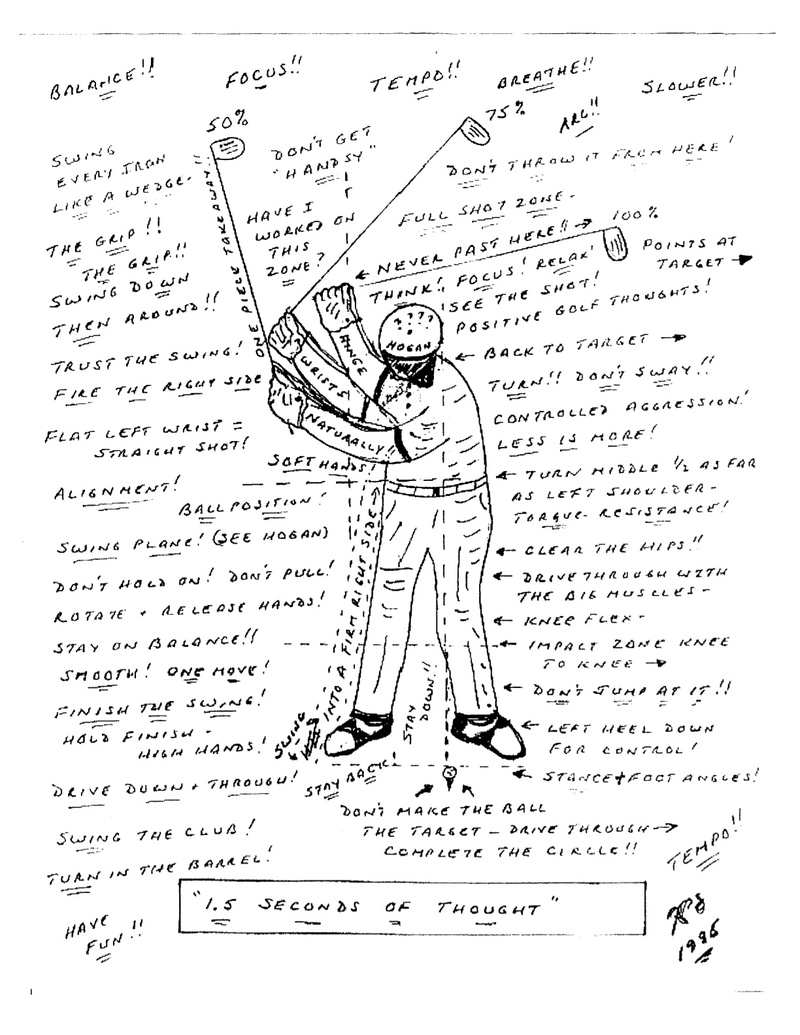 BALANCE!!
FOCUS!!
TEMPO!!
BREATHE!!
SLOWER!!
50%
75%
ARC!!
SWING
EVERY IRON
LIKE A WEDGE-!!
DON'T GET
"HANDSY"
DON'T THROW IT FROM HERE!
THE GRIP!!
THE GRIP!!
HAVE I
WORKED ON
THIS
ZONE?
FULL SHOT ZONE-
100%
← NEVER PAST HERE!! →
POINTS AT
TARGET →
ONE PIECE TAKEAWAY
SWING DOWN
THEN AROUND!!
THINK!, FOCUS! RELAX!
SEE THE SHOT!
POSITIVE GOLF THOUGHTS!
????
HOGAN
HINGE
WRISTS
NATURALLY!!
TRUST THE SWING!
FIRE THE RIGHT SIDE
← BACK TO TARGET →
TURN!! DON'T SWAY!!
CONTROLLED AGGRESSION!
LESS IS MORE!
FLAT LEFT WRIST =
STRAIGHT SHOT!
SOFT HANDS!
← TURN MIDDLE 1/2 AS FAR
AS LEFT SHOULDER-
TORQUE-RESISTANCE!
ALIGNMENT!
BALL POSITION!
SWING PLANE! (SEE HOGAN)
← CLEAR THE HIPS!!
DON'T HOLD ON! DON'T PULL!
← DRIVE THROUGH WITH
THE BIG MUSCLES-
ROTATE + RELEASE HANDS!
← KNEE FLEX-
STAY ON BALANCE!!
← IMPACT ZONE KNEE
TO KNEE →
SMOOTH! ONE MOVE!
← DON'T JUMP AT IT!!
FINISH THE SWING!
HOLD FINISH -
HIGH HANDS!
SWING
INTO A FIRM RIGHT SIDE
STAY
DOWN!!
← LEFT HEEL DOWN
FOR CONTROL!
DRIVE DOWN + THROUGH!
STAY BACK!
← STANCE + FOOT ANGLES!
DON'T MAKE THE BALL
THE TARGET - DRIVE THROUGH →
COMPLETE THE CIRCLE!!
SWING THE CLUB!
TURN IN THE BARREL!
TEMPO!!
"1.5 SECONDS OF THOUGHT"
HAVE
FUN!!